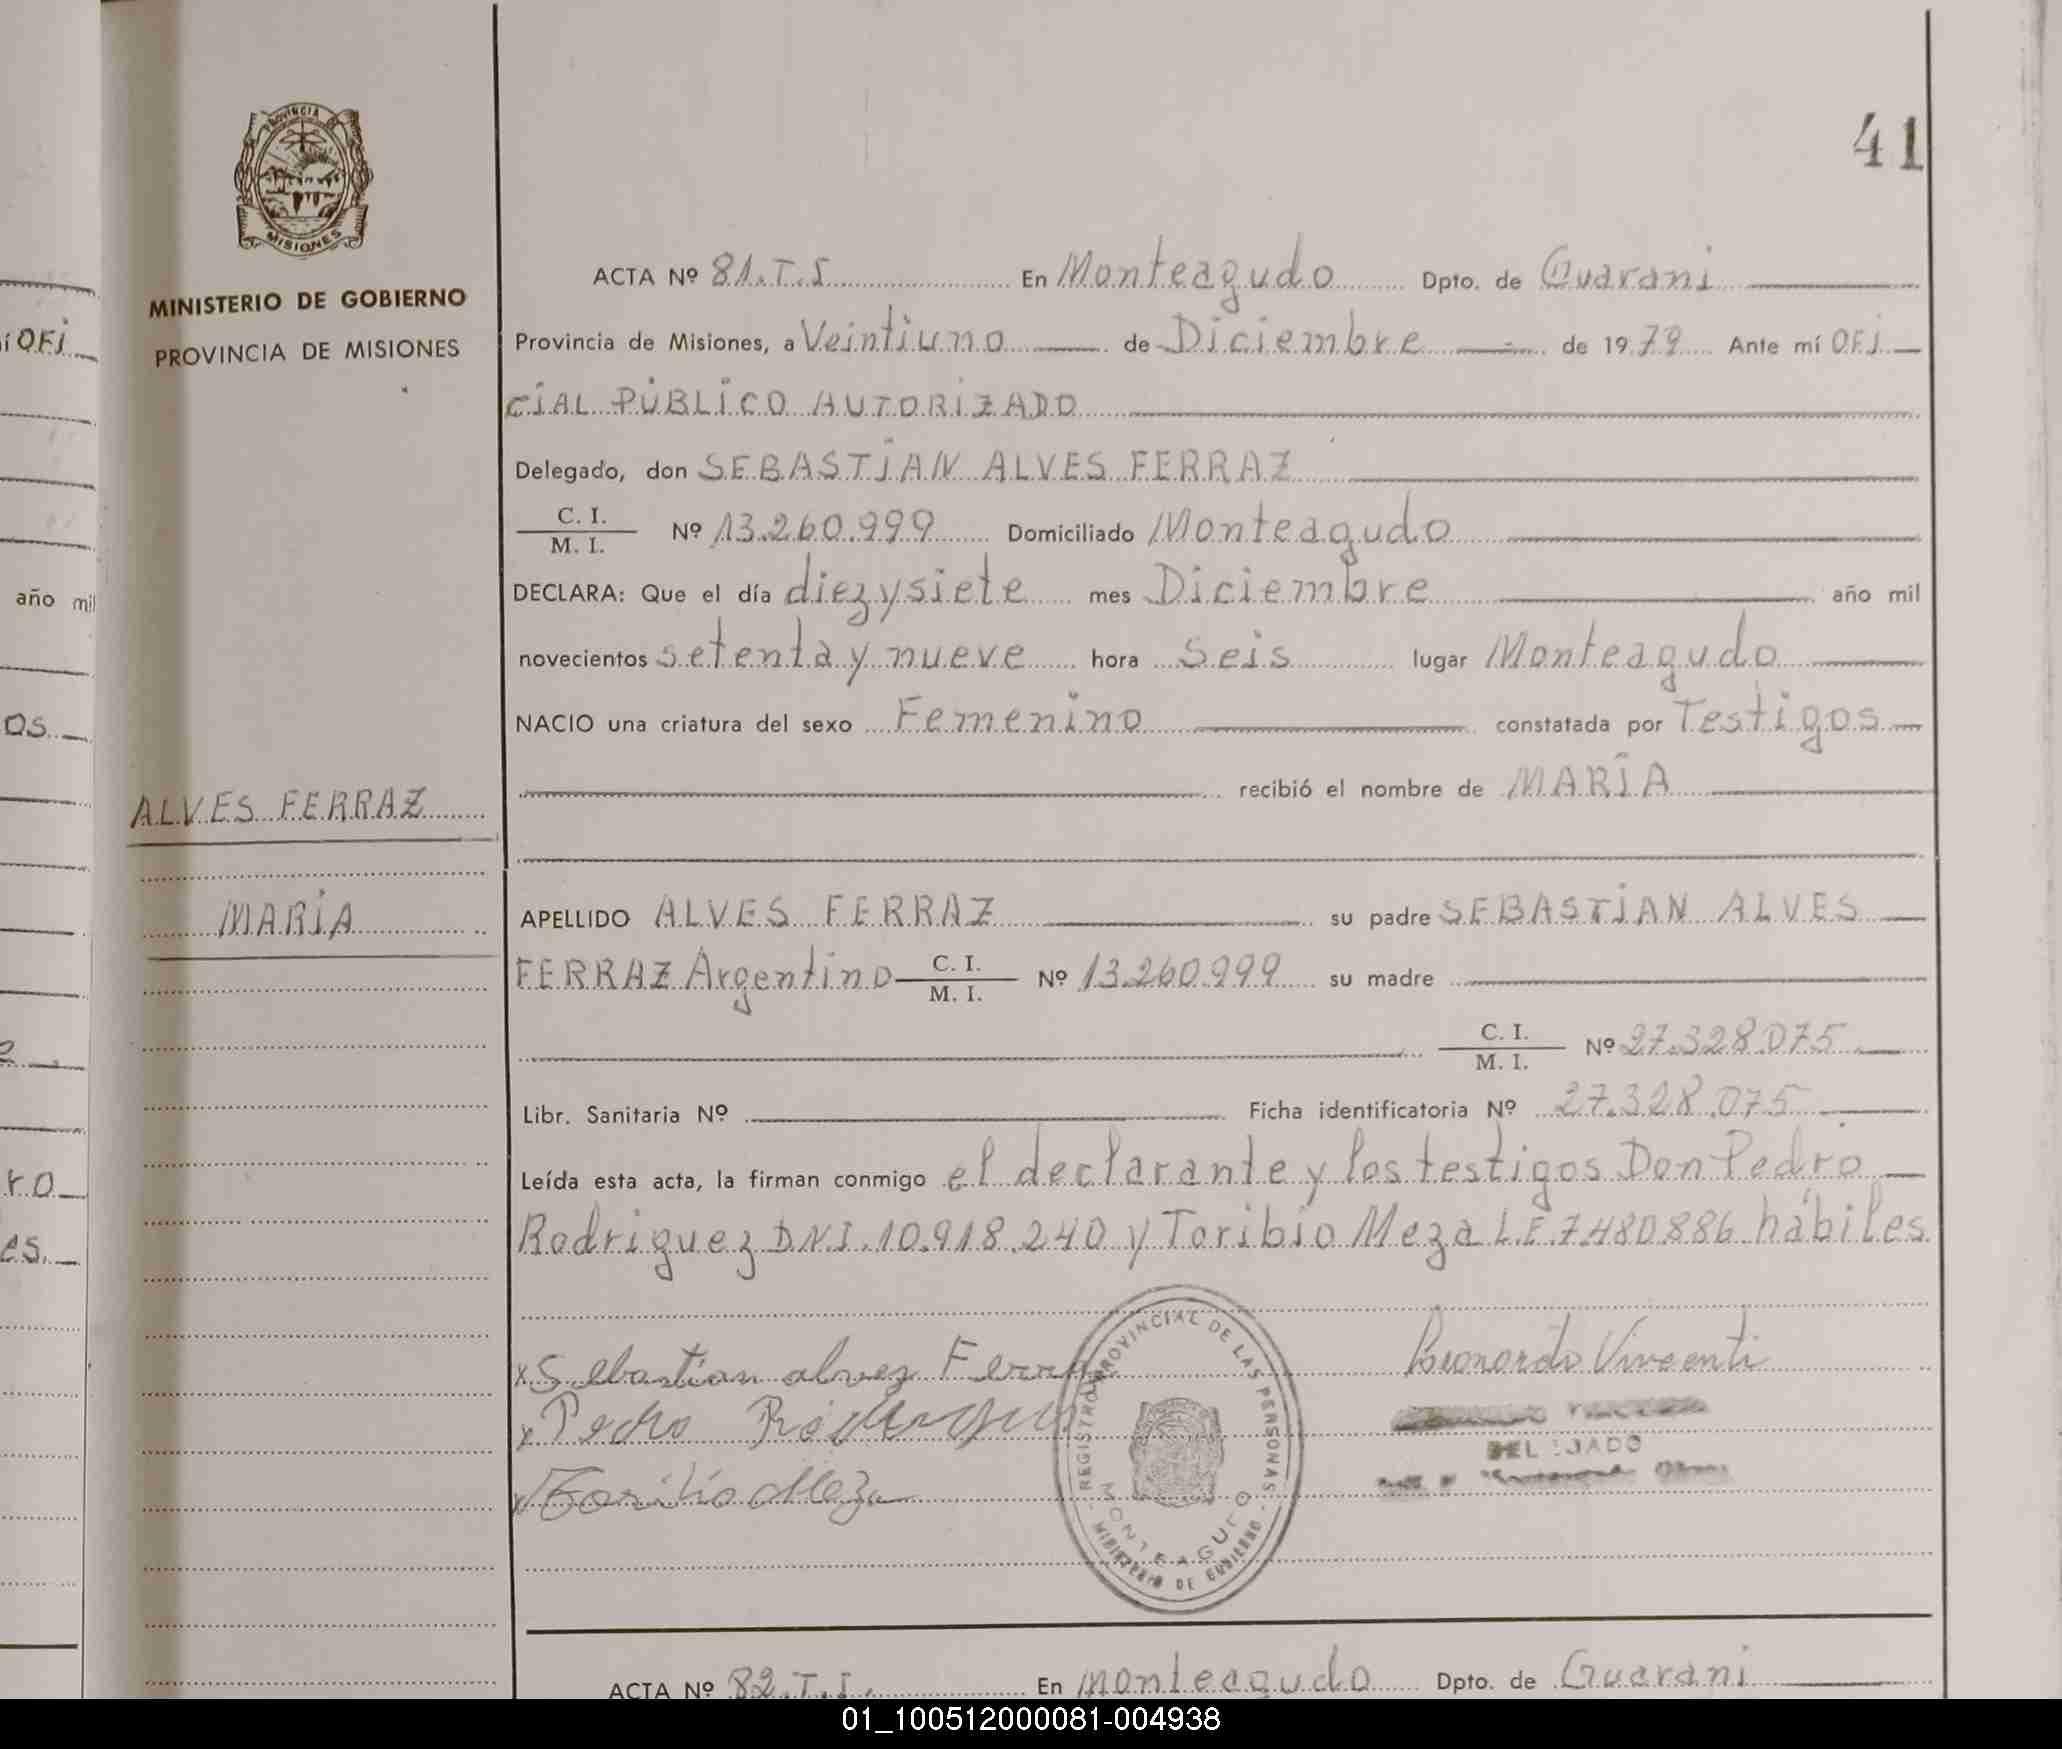 41
PROVINCIA DE
MISIONES
MINISTERIO DE GOBIERNO
PROVINCIA DE MISIONES
ALVES FERRAZ
MARÍA
ACTA Nº 81.T.I En Monteagudo Dpto. de Guarani
Provincia de Misiones, a Veintiuno de Diciembre de 1979 Ante mí OFI
CIAL PÚBLICO AUTORIZADO
Delegado, don SEBASTIAN ALVES FERRAZ
C. I.
M. I. Nº 13.260.999 Domiciliado Monteagudo
DECLARA: Que el día diezysiete mes Diciembre año mil
novecientos setenta y nueve hora seis lugar Monteagudo
NACIO una criatura del sexo Femenino constatada por Testigos
recibió el nombre de MARÍA
APELLIDO ALVES FERRAZ su padre SEBASTIAN ALVES
FERRAZ Argentino C. I. M. I. Nº 13.260.999 su madre
C. I. M. I. Nº 27.328.075
Libr. Sanitaria Nº Ficha identificatoria Nº 27.328.075
Leída esta acta, la firman conmigo el declarante y los testigos Don Pedro
Rodriguez D.N.I. 10.918.240 y Toribio Meza L.E. 7.480.886 hábiles
x Sebastian alvez Ferra
x Pedro Rodriguez
x Toribio Meza
REGISTRO PROVINCIAL DE LAS PERSONAS
MONTEAGUDO
MINISTERIO DE GOBIERNO
Leonardo Vincenti
DELEGADO
ACTA Nº 82.T.I. En Monteagudo Dpto. de Guarani
í OFI
año mil
os
ro
es.
01_100512000081-004938